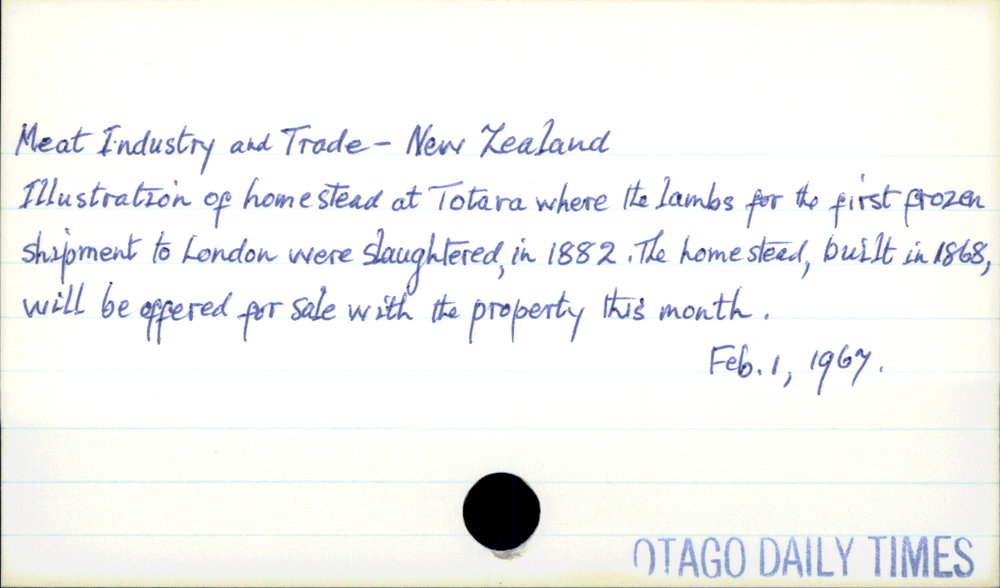 Meat Industry and Trade - New Zealand
Illustration of homestead at Totara where the lambs for the first frozen
shipment to London were slaughtered, in 1882. The homestead, built in 1868,
will be offered for sale with the property this month.
Feb. 1, 1967.
OTAGO DAILY TIMES